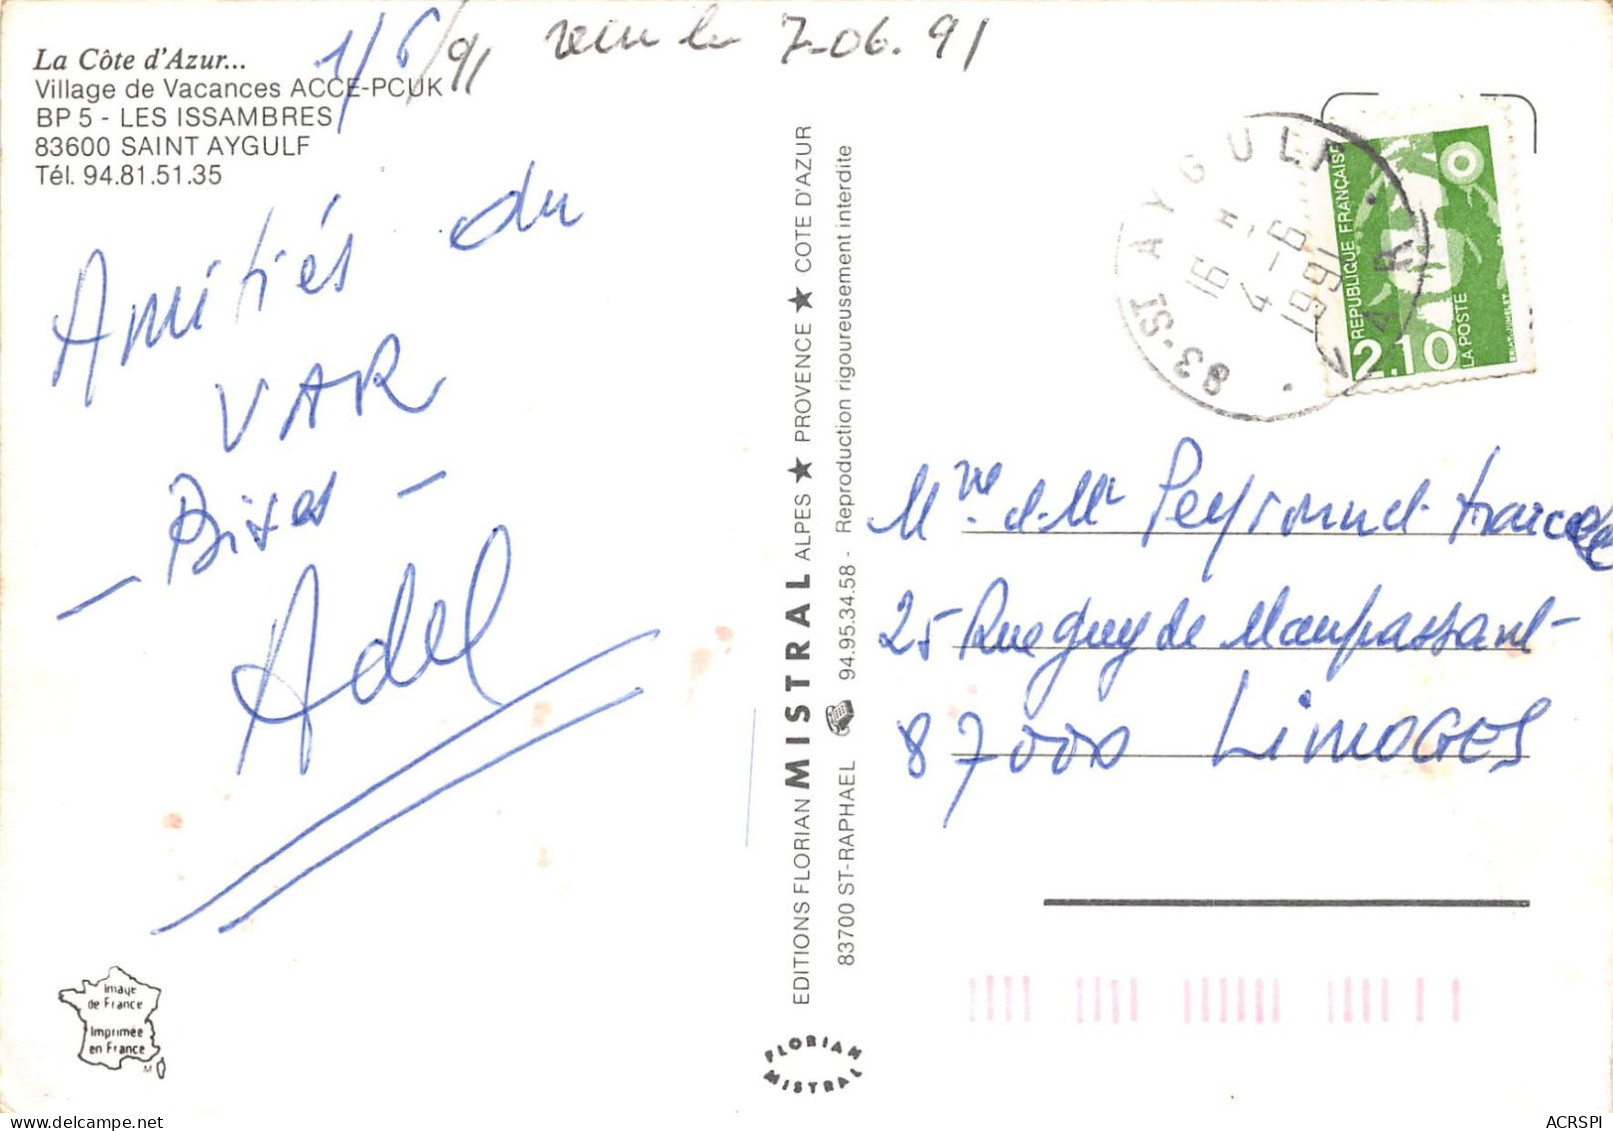 La Côte d'Azur...
Village de Vacances ACCE-PCUK
BP 5 - LES ISSAMBRES
83600 SAINT AYGULF
Tél. 94.81.51.35
1/6/91
7-06.91
Amitiés du
VAR
- Bises -
Adel
EDITIONS FLORIAN MISTRAL ALPES ★ PROVENCE ★ COTE D'AZUR
83700 ST-RAPHAEL 94.95.34.58 - Reproduction rigoureusement interdite
83-ST AYGULF
VAR
16 H
4 - 6
1991
REPUBLIQUE FRANÇAISE
2.10
LA POSTE
BRIAT-JUMELET
25 Rue guy de Maupassant
87000 LIMOGES
Image
de France
Imprimée
en France
FLORIAN
MISTRAL
ACRSPI